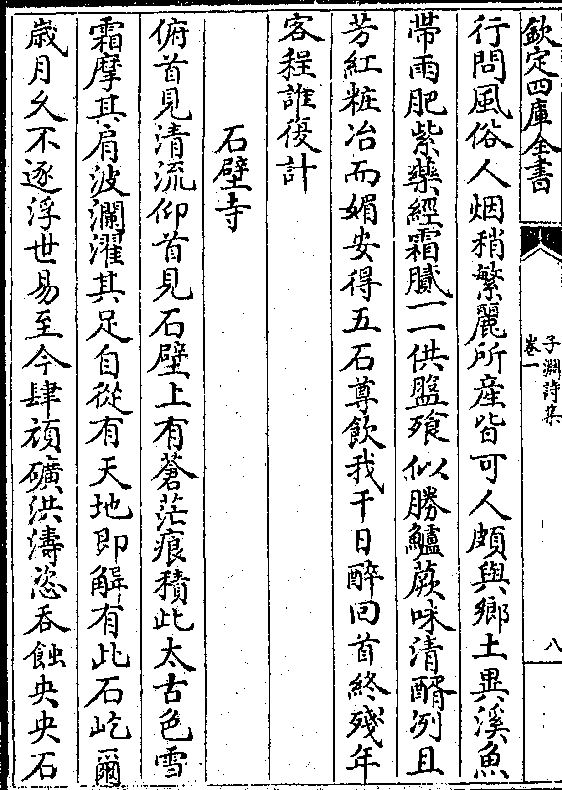 欽定四庫全書
子淵詩集
卷一
八
行問風俗人烟稍繁麗所産皆可人頗與鄉土異溪魚
帶雨肥紫藥經霜膩一一供盤飱似勝鱸蕨味清醑冽且
芳紅粧冶而媚安得五石尊飲我千日醉回首終殘年
客程誰復計
石壁寺
俯首見清流仰首見石壁上有蒼茫痕積此太古色雪
霜摩其肩波瀾濯其足自從有天地即解有此石屹爾
歲月久不逐浮世易至今肆頑礦洪濤恣吞蝕央央石